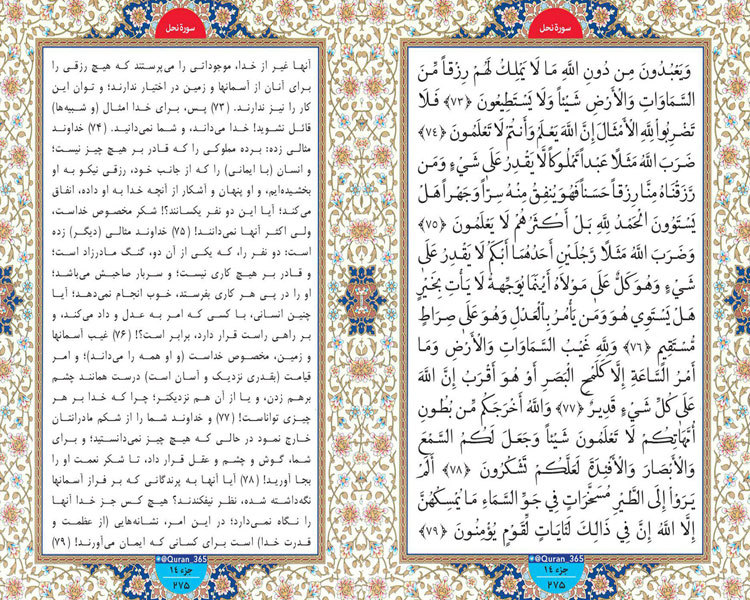 سورهٔ نحل
وَيَعْبُدُونَ مِن دُونِ اللَّهِ مَا لَا يَمْلِكُ لَهُمْ رِزْقاً مِّنَ
السَّمَاوَاتِ وَالْأَرْضِ شَيْئاً وَلَا يَسْتَطِيعُونَ ﴿٧٣﴾ فَلَا
تَضْرِبُوا لِلَّهِ الْأَمْثَالَ إِنَّ اللَّهَ يَعْلَمُ وَأَنتُمْ لَا تَعْلَمُونَ ﴿٧٤﴾
ضَرَبَ اللَّهُ مَثَلًا عَبْداً مَّمْلُوكاً لَّا يَقْدِرُ عَلَى شَيْءٍ وَمَن
رَّزَقْنَاهُ مِنَّا رِزْقاً حَسَناً فَهُوَ يُنفِقُ مِنْهُ سِرّاً وَجَهْراً هَلْ
يَسْتَوُونَ الْحَمْدُ لِلَّهِ بَلْ أَكْثَرُهُمْ لَا يَعْلَمُونَ ﴿٧٥﴾
وَضَرَبَ اللَّهُ مَثَلًا رَّجُلَيْنِ أَحَدُهُمَا أَبْكَمُ لَا يَقْدِرُ عَلَى
شَيْءٍ وَهُوَ كَلٌّ عَلَى مَوْلَاهُ أَيْنَمَا يُوَجِّههُّ لَا يَأْتِ بِخَيْرٍ
هَلْ يَسْتَوِي هُوَ وَمَن يَأْمُرُ بِالْعَدْلِ وَهُوَ عَلَى صِرَاطٍ
مُّسْتَقِيمٍ ﴿٧٦﴾ وَلِلَّهِ غَيْبُ السَّمَاوَاتِ وَالْأَرْضِ وَمَا
أَمْرُ السَّاعَةِ إِلَّا كَلَمْحِ الْبَصَرِ أَوْ هُوَ أَقْرَبُ إِنَّ اللَّهَ
عَلَى كُلِّ شَيْءٍ قَدِيرٌ ﴿٧٧﴾ وَاللَّهُ أَخْرَجَكُم مِّن بُطُونِ
أُمَّهَاتِكُمْ لَا تَعْلَمُونَ شَيْئاً وَجَعَلَ لَكُمُ السَّمْعَ
وَالْأَبْصَارَ وَالْأَفْئِدَةَ لَعَلَّكُمْ تَشْكُرُونَ ﴿٧٨﴾ أَلَمْ
يَرَوْا إِلَى الطَّيْرِ مُسَخَّرَاتٍ فِي جَوِّ السَّمَاءِ مَا يُمْسِكُهُنَّ
إِلَّا اللَّهُ إِنَّ فِي ذَالِكَ لَآيَاتٍ لِّقَوْمٍ يُؤْمِنُونَ ﴿٧٩﴾
@Quran_365
جزء ١٤
٢٧٥
سورهٔ نحل
آنها غیر از خدا، موجوداتی را می‌پرستند که هیچ رزقی را
برای آنان از آسمانها و زمین در اختیار ندارند؛ و توان این
کار را نیز ندارند. (٧٣) پس، برای خدا امثال (و شبیه‌ها)
قائل نشوید! خدا می‌داند، و شما نمی‌دانید. (٧٤) خداوند
مثالی زده: برده مملوکی را که قادر بر هیچ چیز نیست؛
و انسان (با ایمانی) را که از جانب خود، رزقی نیکو به او
بخشیده‌ایم، و او پنهان و آشکار از آنچه خدا به او داده، انفاق
می‌کند؛ آیا این دو نفر یکسانند؟! شکر مخصوص خداست،
ولی اکثر آنها نمی‌دانند! (٧٥) خداوند مثالی (دیگر) زده
است: دو نفر را، که یکی از آن دو، گنگ مادرزاد است؛
و قادر بر هیچ کاری نیست؛ و سربار صاحبش می‌باشد؛
او را در پی هر کاری بفرستد، خوب انجام نمی‌دهد؛ آیا
چنین انسانی، با کسی که امر به عدل و داد می‌کند، و
بر راهی راست قرار دارد، برابر است؟! (٧٦) غیب آسمانها
و زمین، مخصوص خداست (و او همه را می‌داند)؛ و امر
قیامت (بقدری نزدیک و آسان است) درست همانند چشم
برهم زدن، و یا از آن هم نزدیکتر؛ چرا که خدا بر هر
چیزی تواناست! (٧٧) و خداوند شما را از شکم مادرانتان
خارج نمود در حالی که هیچ چیز نمی‌دانستید؛ و برای
شما، گوش و چشم و عقل قرار داد، تا شکر نعمت او را
بجا آورید! (٧٨) آیا آنها به پرندگانی که بر فراز آسمانها
نگه‌داشته شده، نظر نیفکندند؟ هیچ کس جز خدا آنها
را نگاه نمی‌دارد؛ در این امر، نشانه‌هایی (از عظمت و
قدرت خدا) است برای کسانی که ایمان می‌آورند! (٧٩)
@Quran_365
جزء ١٤
٢٧٥